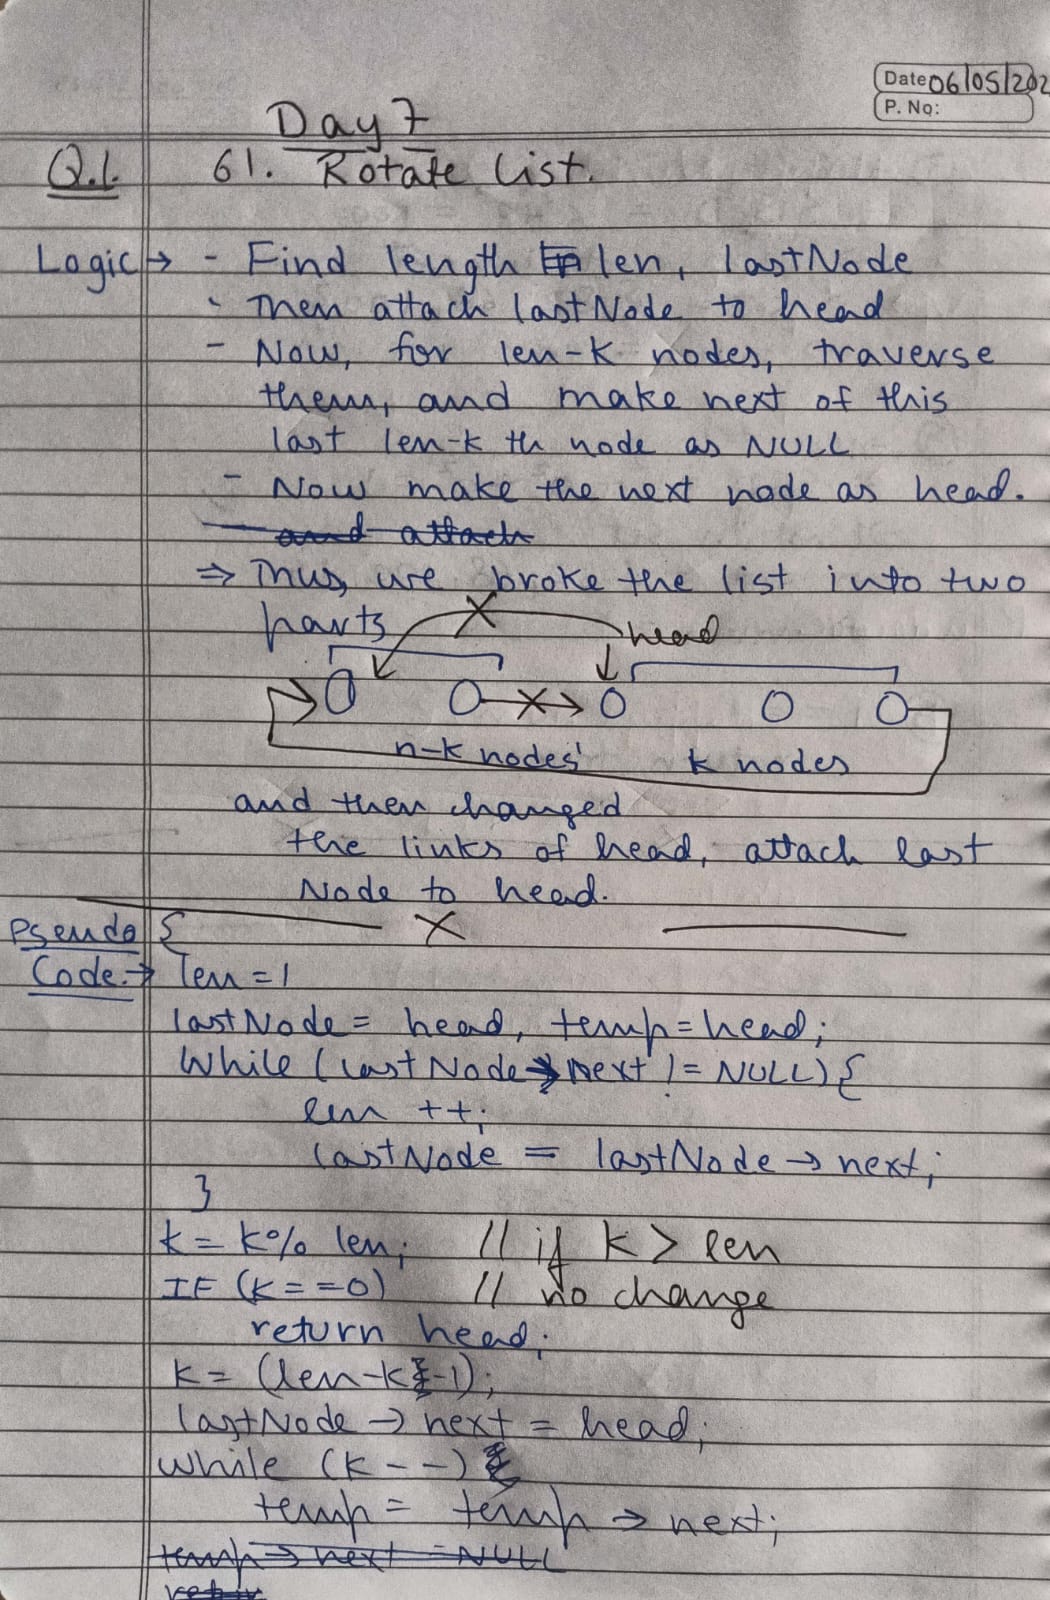 Date 06/05/202
P. No:
Day 7
Q.1. 61. Rotate List.
Logic → - Find length len, lastNode
- Then attach lastNode to head
- Now, for len-k nodes, traverse
them, and make next of this
last len-k th node as NULL
- Now make the next node as head.
and attach
⇒ Thus, we broke the list into two
parts
head
n-k nodes
k nodes
and then changed
the links of head, attach last
Node to head.
Pseudo {
Code → len = 1
lastNode = head, temp = head;
While (lastNode → next != NULL) {
len ++;
lastNode = lastNode → next;
}
k = k % len; // if k > len
IF (k == 0) // no change
return head;
k = (len-k-1);
lastNode → next = head;
while (k--)
temp = temp → next;
temp → next = NULL